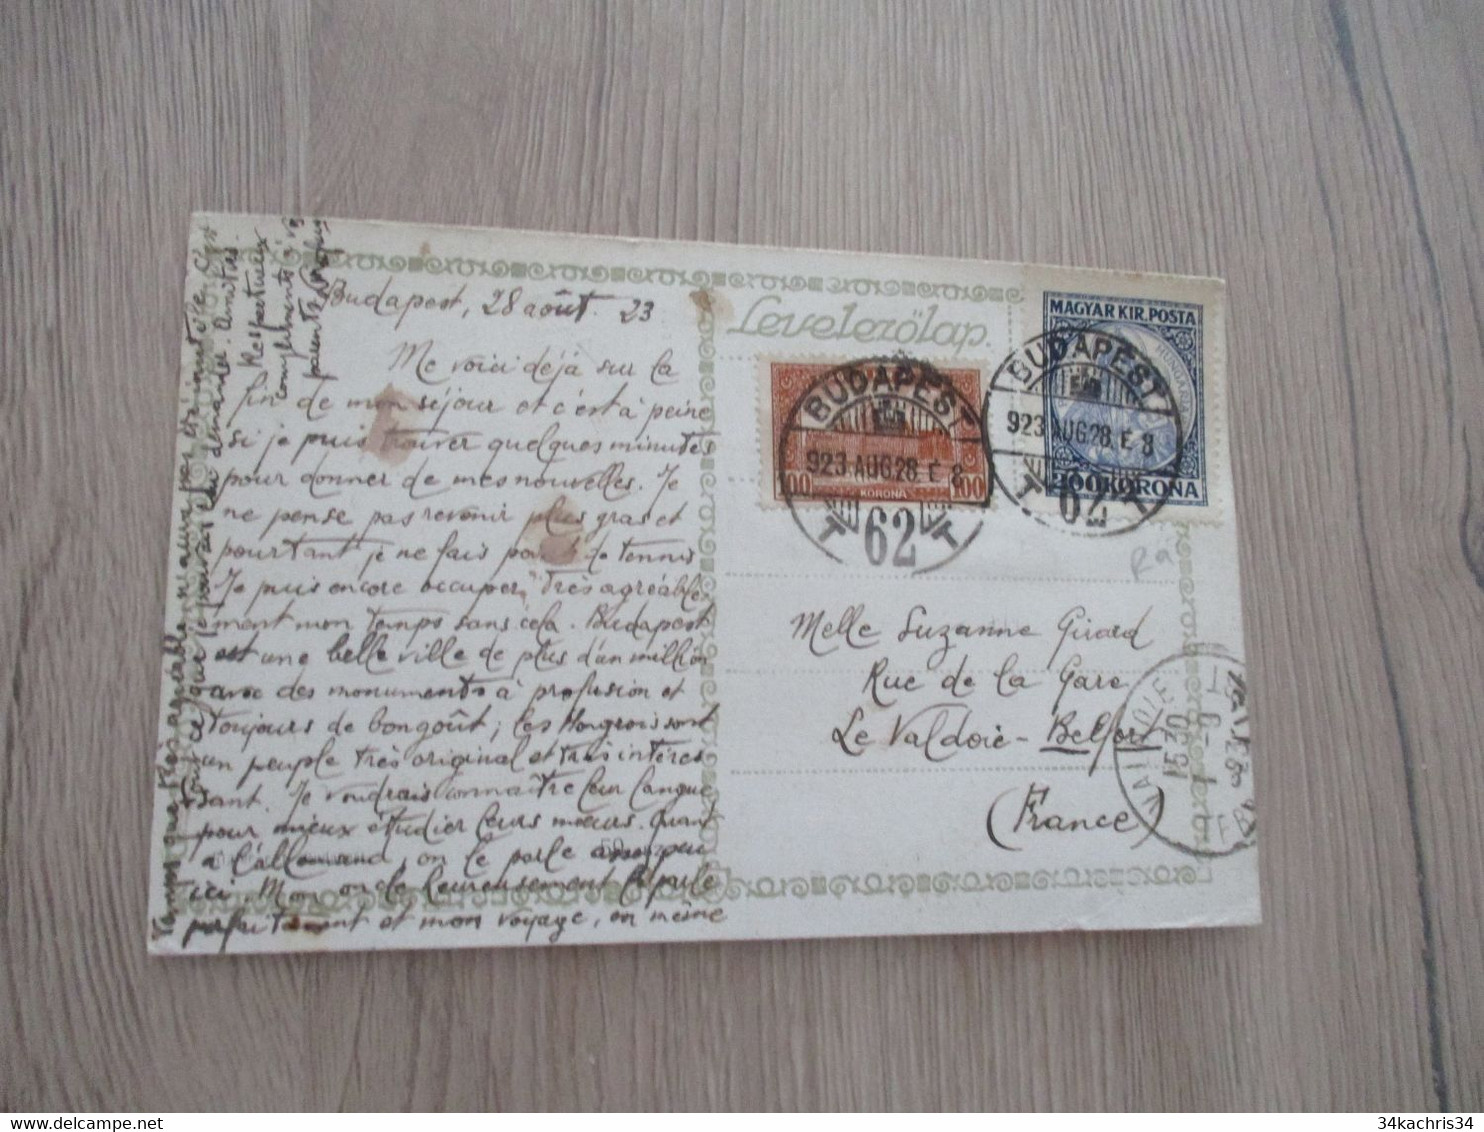 Budapest, 28 août. 23
Me voici déjà sur la
fin de mon séjour et c'est à peine
si je puis trouver quelques minutes
pour donner de mes nouvelles. Je
ne pense pas revenir plus gras et
pourtant je ne fais pas de tennis
Je puis encore occuper très agréable
ment mon temps sans cela. Budapest
est une belle ville de plus d'un million
avec des monuments à profusion et
toujours de bon goût; les Hongrois sont
un peuple très original et très intéres
sant. Je voudrais connaître leur langue
pour mieux étudier leurs mœurs. Quant
à l'allemand, on le parle peu
ici. Mon oncle heureusement le parle
parfaitement et mon voyage, en même
temps que très agréable, n'aura pas été inutile. C'est
tout ce que je pouvais lui demander. Amitiés.
Respectueux
compliments à vos
parents
Levelezőlap.
MAGYAR KIR. POSTA
HUNGARIAE
200 KORONA
100 KORONA 100
BUDAPEST 62
923 AUG 28 E 8
T T
BUDAPEST 62
923 AUG 28 E 8
T T
Melle Suzanne Girard
Rue de la Gare
Le Valdoie - Belfort
(France)
VALDOIE
15 30
1 - 9
34kachris34
delcampe.net